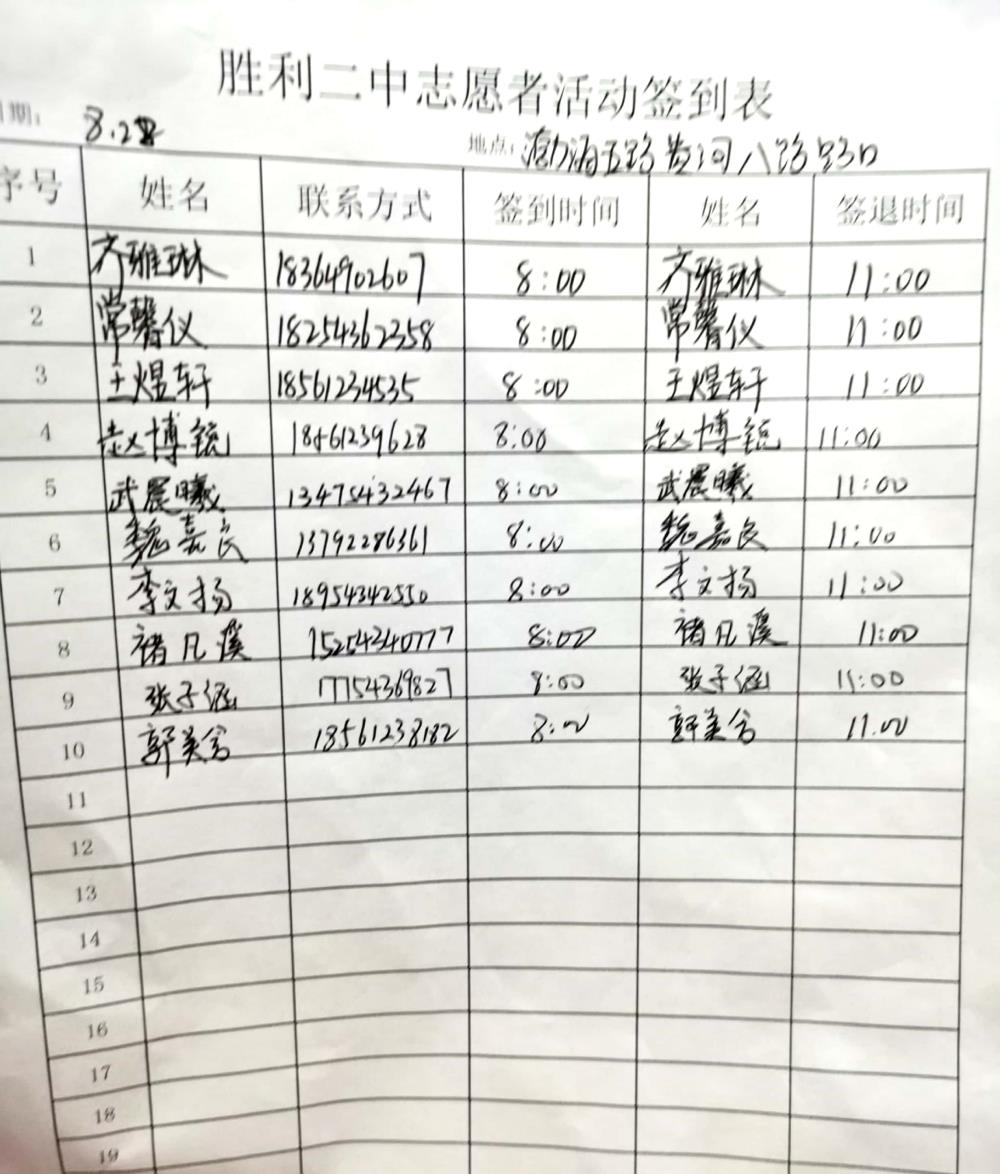 胜利二中志愿者活动签到表
日期: 8.2
地点: 渤海五路黄河八路路口
序号 姓名 联系方式 签到时间 姓名 签退时间
1 齐雅琳 18364902607 8:00 齐雅琳 11:00
2 常馨仪 18254362358 8:00 常馨仪 11:00
3 王煜轩 18561234535 8:00 王煜轩 11:00
4 赵博 18561239628 8:00 赵博 11:00
5 武晨曦 13475432467 8:00 武晨曦 11:00
6 魏嘉良 13792286361 8:00 魏嘉良 11:00
7 李文扬 18954342550 8:00 李文扬 11:00
8 褚凡溪 15254340777 8:00 褚凡溪 11:00
9 张子涵 177154369827 8:00 张子涵 11:00
10 郭美含 18561238182 8:00 郭美含 11.00
11
12
13
14
15
16
17
18
19